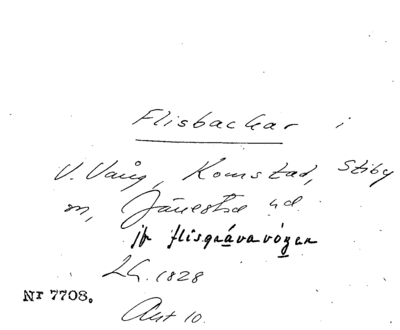 Flisbackar i
V. Vång, Komstad, Stiby
m, Järrestad
jfr flisgrávavógen
LG. 1828
Nr 7708.
Ant 10.